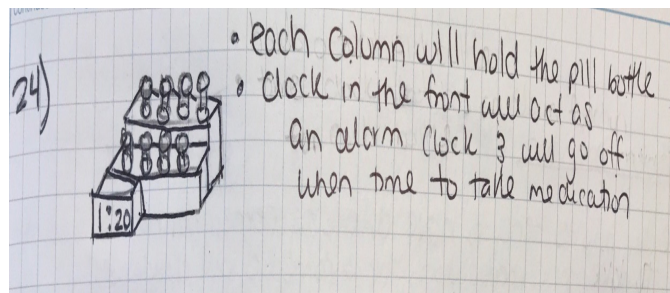 24)
• each column will hold the pill bottle
• clock in the front will act as
an alarm clock & will go off
when time to take medication
1:20